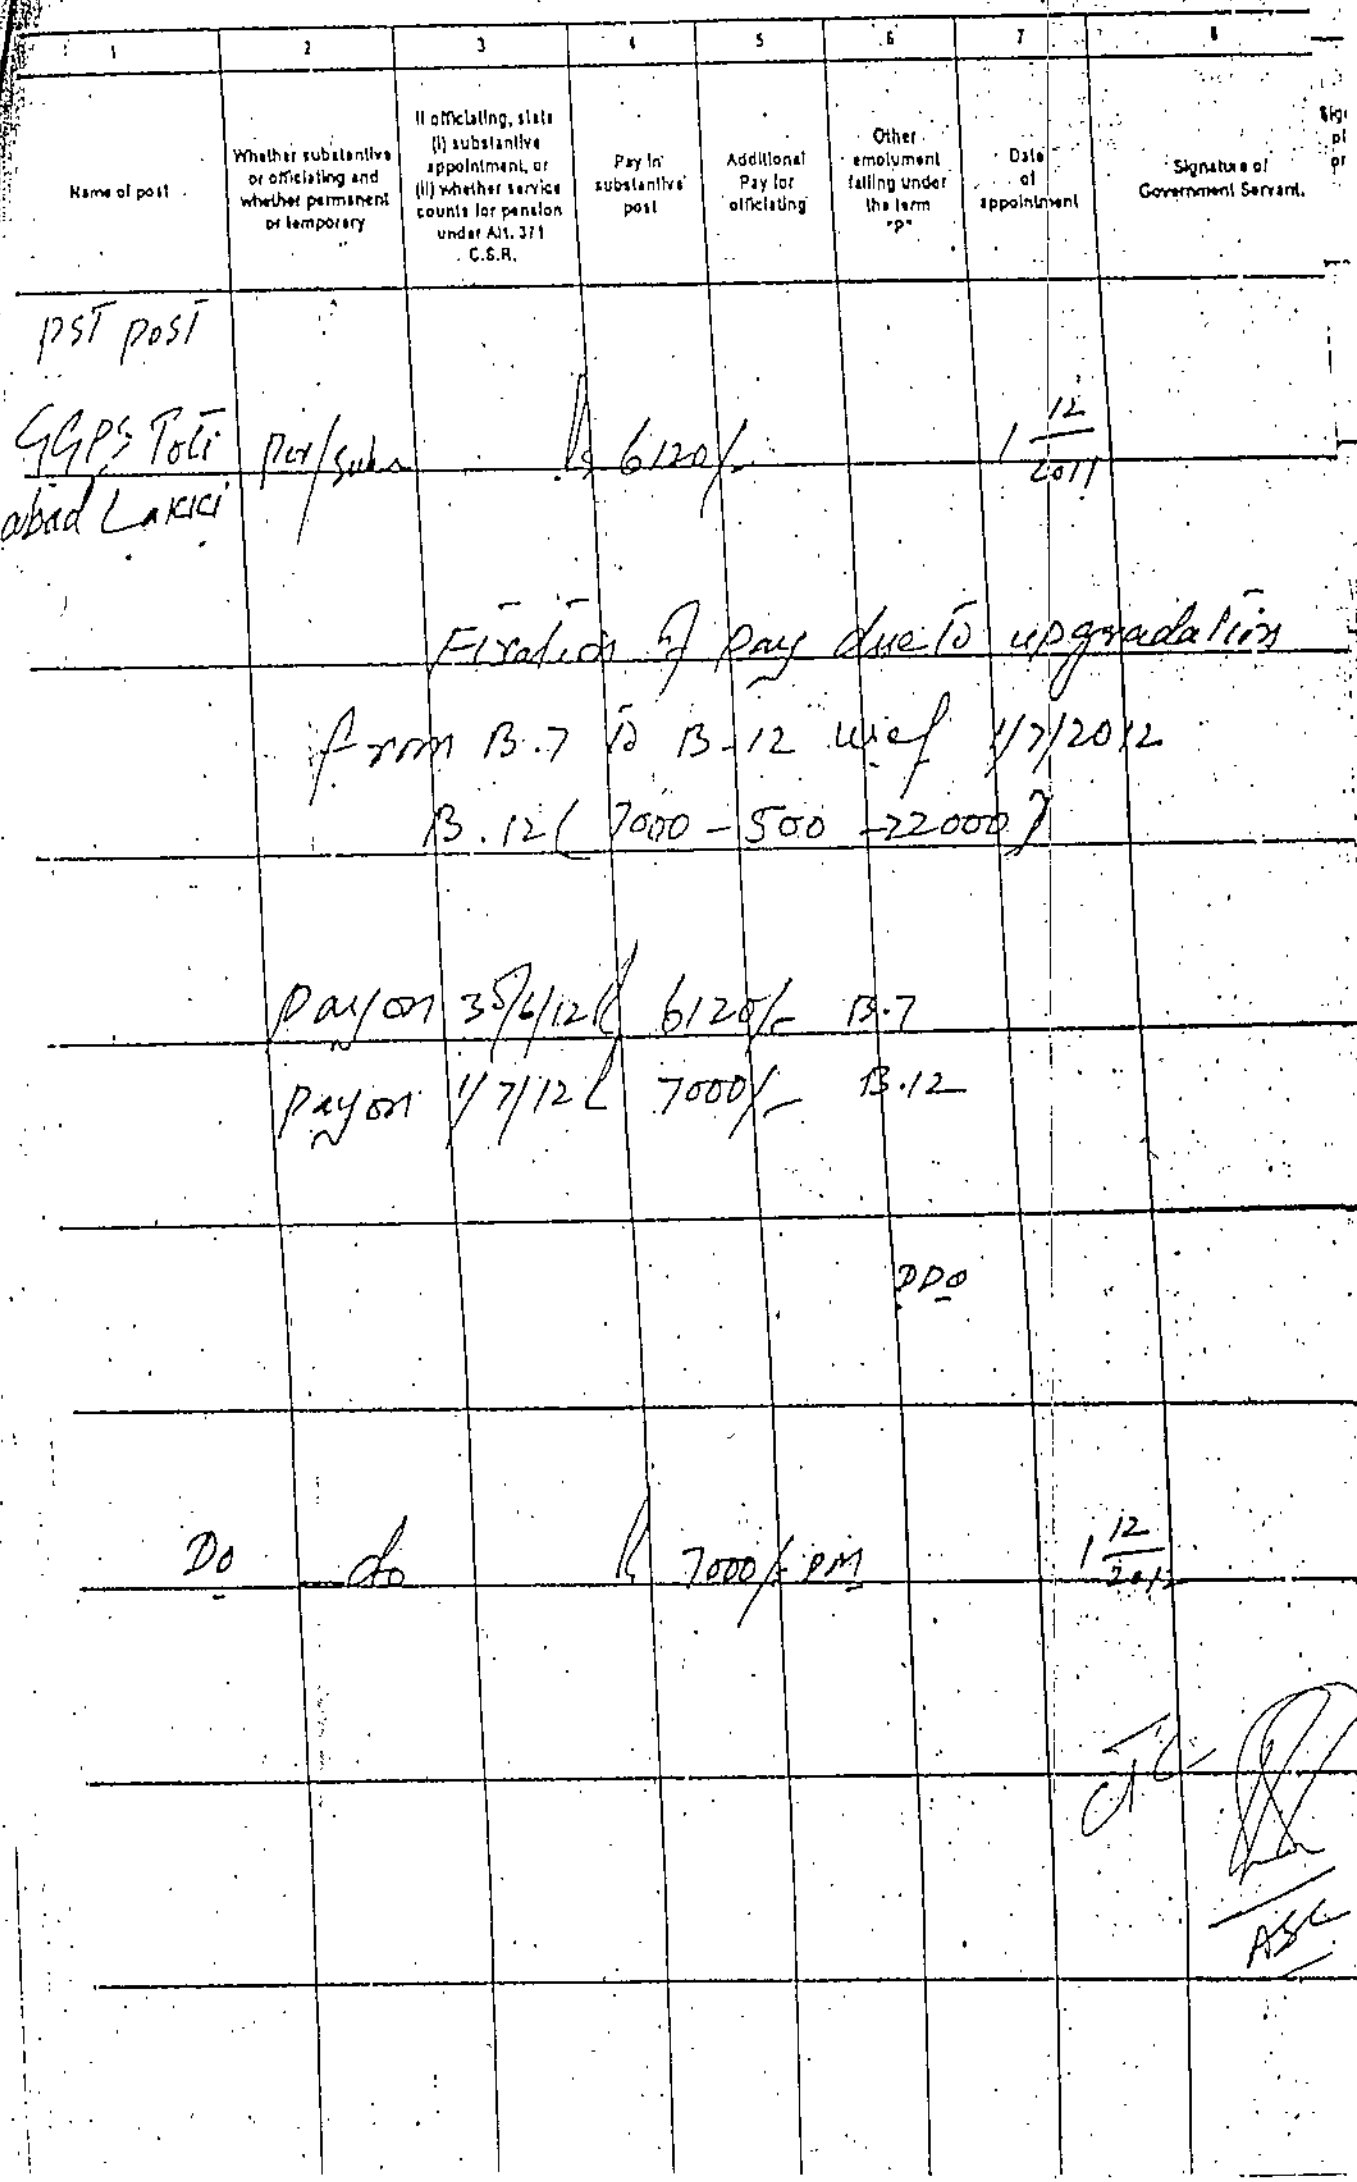 1 2 3 4 5 6 7 8
Name of post
Whether substantive
or officiating and
whether permanent
or temporary
If officiating, state
(i) substantive
appointment, or
(ii) whether service
counts for pension
under Art. 371
C.S.R.
Pay in
substantive
post
Additional
Pay for
officiating
Other
emolument
falling under
the term
"P"
Date
of
appointment
Signature of
Government Servant.
PST post
GGPS Toti Per/Subs Rs 6120/- 1 12/2011
abad Lakki
Fixation of pay due to upgradation
from B.7 to B-12 w.e.f 1/7/2012
B.12 (7000-500-22000)
Pay on 30/6/12 Rs 6120/- B.7
Pay on 1/7/12 Rs 7000/- B.12
DDO
Do do Rs 7000/- PM 1 12/2012